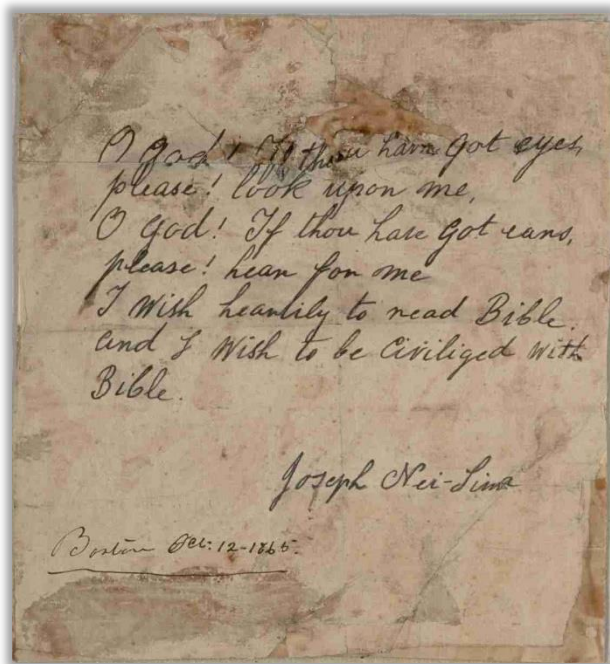 O God! If thou have got eyes,
please! look upon me,
O God! If thou have got ears,
please! hear for me
I wish heartily to read Bible.
and I wish to be civiliged with
Bible.
Joseph Nei-Sima
Boston Oct. 12-1865.